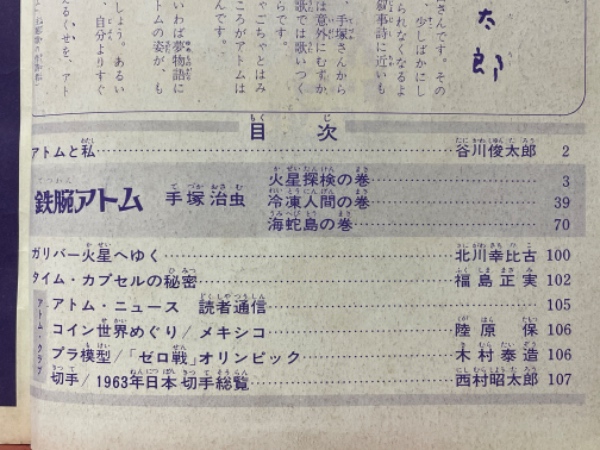 太郎
さんです。その
、少しばかにし
られなくなるよ
叙事詩に近いも
、手塚さんから
は意外にむずか
歌では歌いつく
らです。
ちゃごちゃとはみ
ころがアトムは
んです。
いわば夢物語に
トムの姿が、も
しょう。あるい
、自分よりすぐ
くせを、アト
目次
アトムと私 谷川俊太郎 2
鉄腕アトム 手塚治虫
火星探検の巻 3
冷凍人間の巻 39
海蛇島の巻 70
ガリバー火星へゆく 北川幸比古 100
タイム・カプセルの秘密 福島正実 102
アトム・クラブ
アトム・ニュース 読者通信 105
コイン世界めぐり/メキシコ 陸原保 106
プラ模型/「ゼロ戦」オリンピック 木村泰造 106
切手/1963年日本切手総覧 西村昭太郎 107